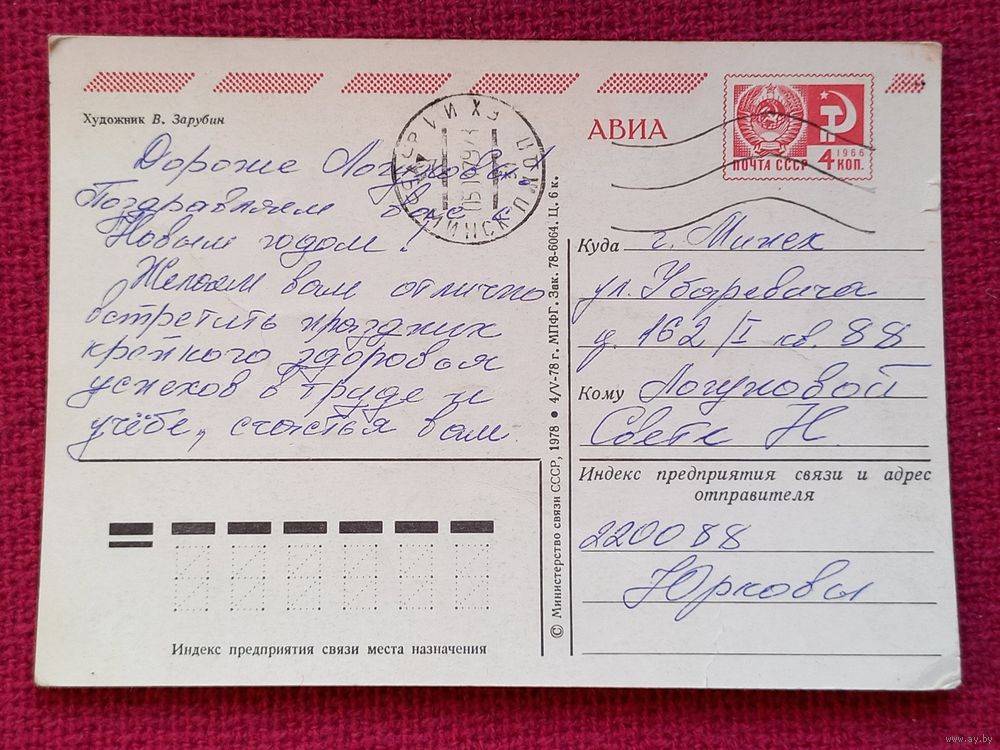 Художник В. Зарубин
Дорогие Логуновы!
Поздравляем вас с
Новым годом!
Желаем вам отлично
встретить праздник
крепкого здоровья
успехов в труде и
учёбе, счастья вам.
Индекс предприятия связи места назначения
© Министерство связи СССР, 1978 • 4/V-78 г. МПФГ. Зак. 78-6064. Ц. 6 к.
МИНСК
АВИА
ПОЧТА СССР
1966
4 КОП.
Куда г. Минск
ул. Убаревича
д. 162/I кв. 88
Кому Логуновой
Свете Н.
Индекс предприятия связи и адрес
отправителя
220088
Юрковы
www.ay.by